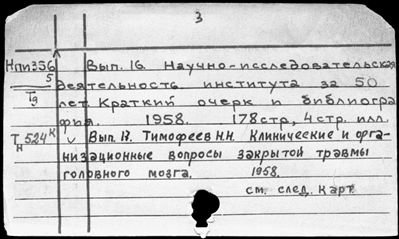 3
Нпи356 Вып. 16. Научно-исследовательская
5 деятельность института за 50
Тд лет. Краткий очерк и библиогра-
фия. 1958. 178 стр, 4 стр. илл.
Тн 524к v Вып. 17. Тимофеев Н.Н. Клинические и орга-
низационные вопросы закрытой травмы
головного мозга. 1958.
см. след. карт.